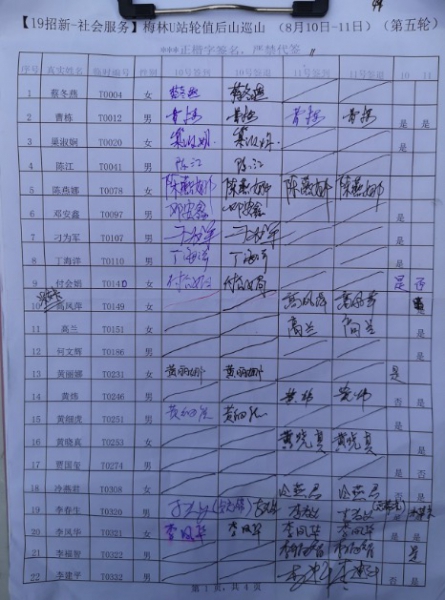 【19招新-社会服务】梅林U站轮值后山巡山 （8月10日-11日）（第五轮）
***正楷字签名，严禁代签
序号 真实姓名 临时编号 性别 10号签到 10号签退 11号签到 11号签退 10 11
1 蔡冬燕 T0004 女
2 曹栋 T0012 男 曹栋 曹栋 曹栋 曹栋 是 是
3 梁淑娴 T0020 女 是
4 陈江 T0041 男 陈江 陈江 是
5 陈燕娜 T0078 女 陈燕娜 陈燕娜 陈燕娜 陈燕娜 是 是
6 邓安鑫 T0097 男 邓安鑫 邓安鑫 是
7 刁为军 T0107 男 刁为军 刁为军 是
8 丁海洋 T0110 男 丁海洋 丁海洋 是
9 付会娟 T0140 女 付会娟 付会娟 是 否
10 高风萍 T0149 女 高风萍 高风萍
11 高兰 T0151 女 高兰 高兰 是
12 何文辉 T0186 男
13 黄丽娜 T0231 女 黄丽娜 黄丽娜 是
14 黄炜 T0246 男 黄炜 黄炜 否 是
15 T0251 男 是
16 黄晓真 T0253 女 黄晓真 黄晓真 是
17 T0274 男 否
18 冷燕君 T0308 女 冷燕君 冷燕君 是
19 李春生 T0320 男
20 李凤华 T0321 女 李凤华 李凤华 李凤华 李凤华 是
21 李福智 T0322 男 李福智 李福智 是
22 李建平 T0332 男
第 1 页，共 4 页